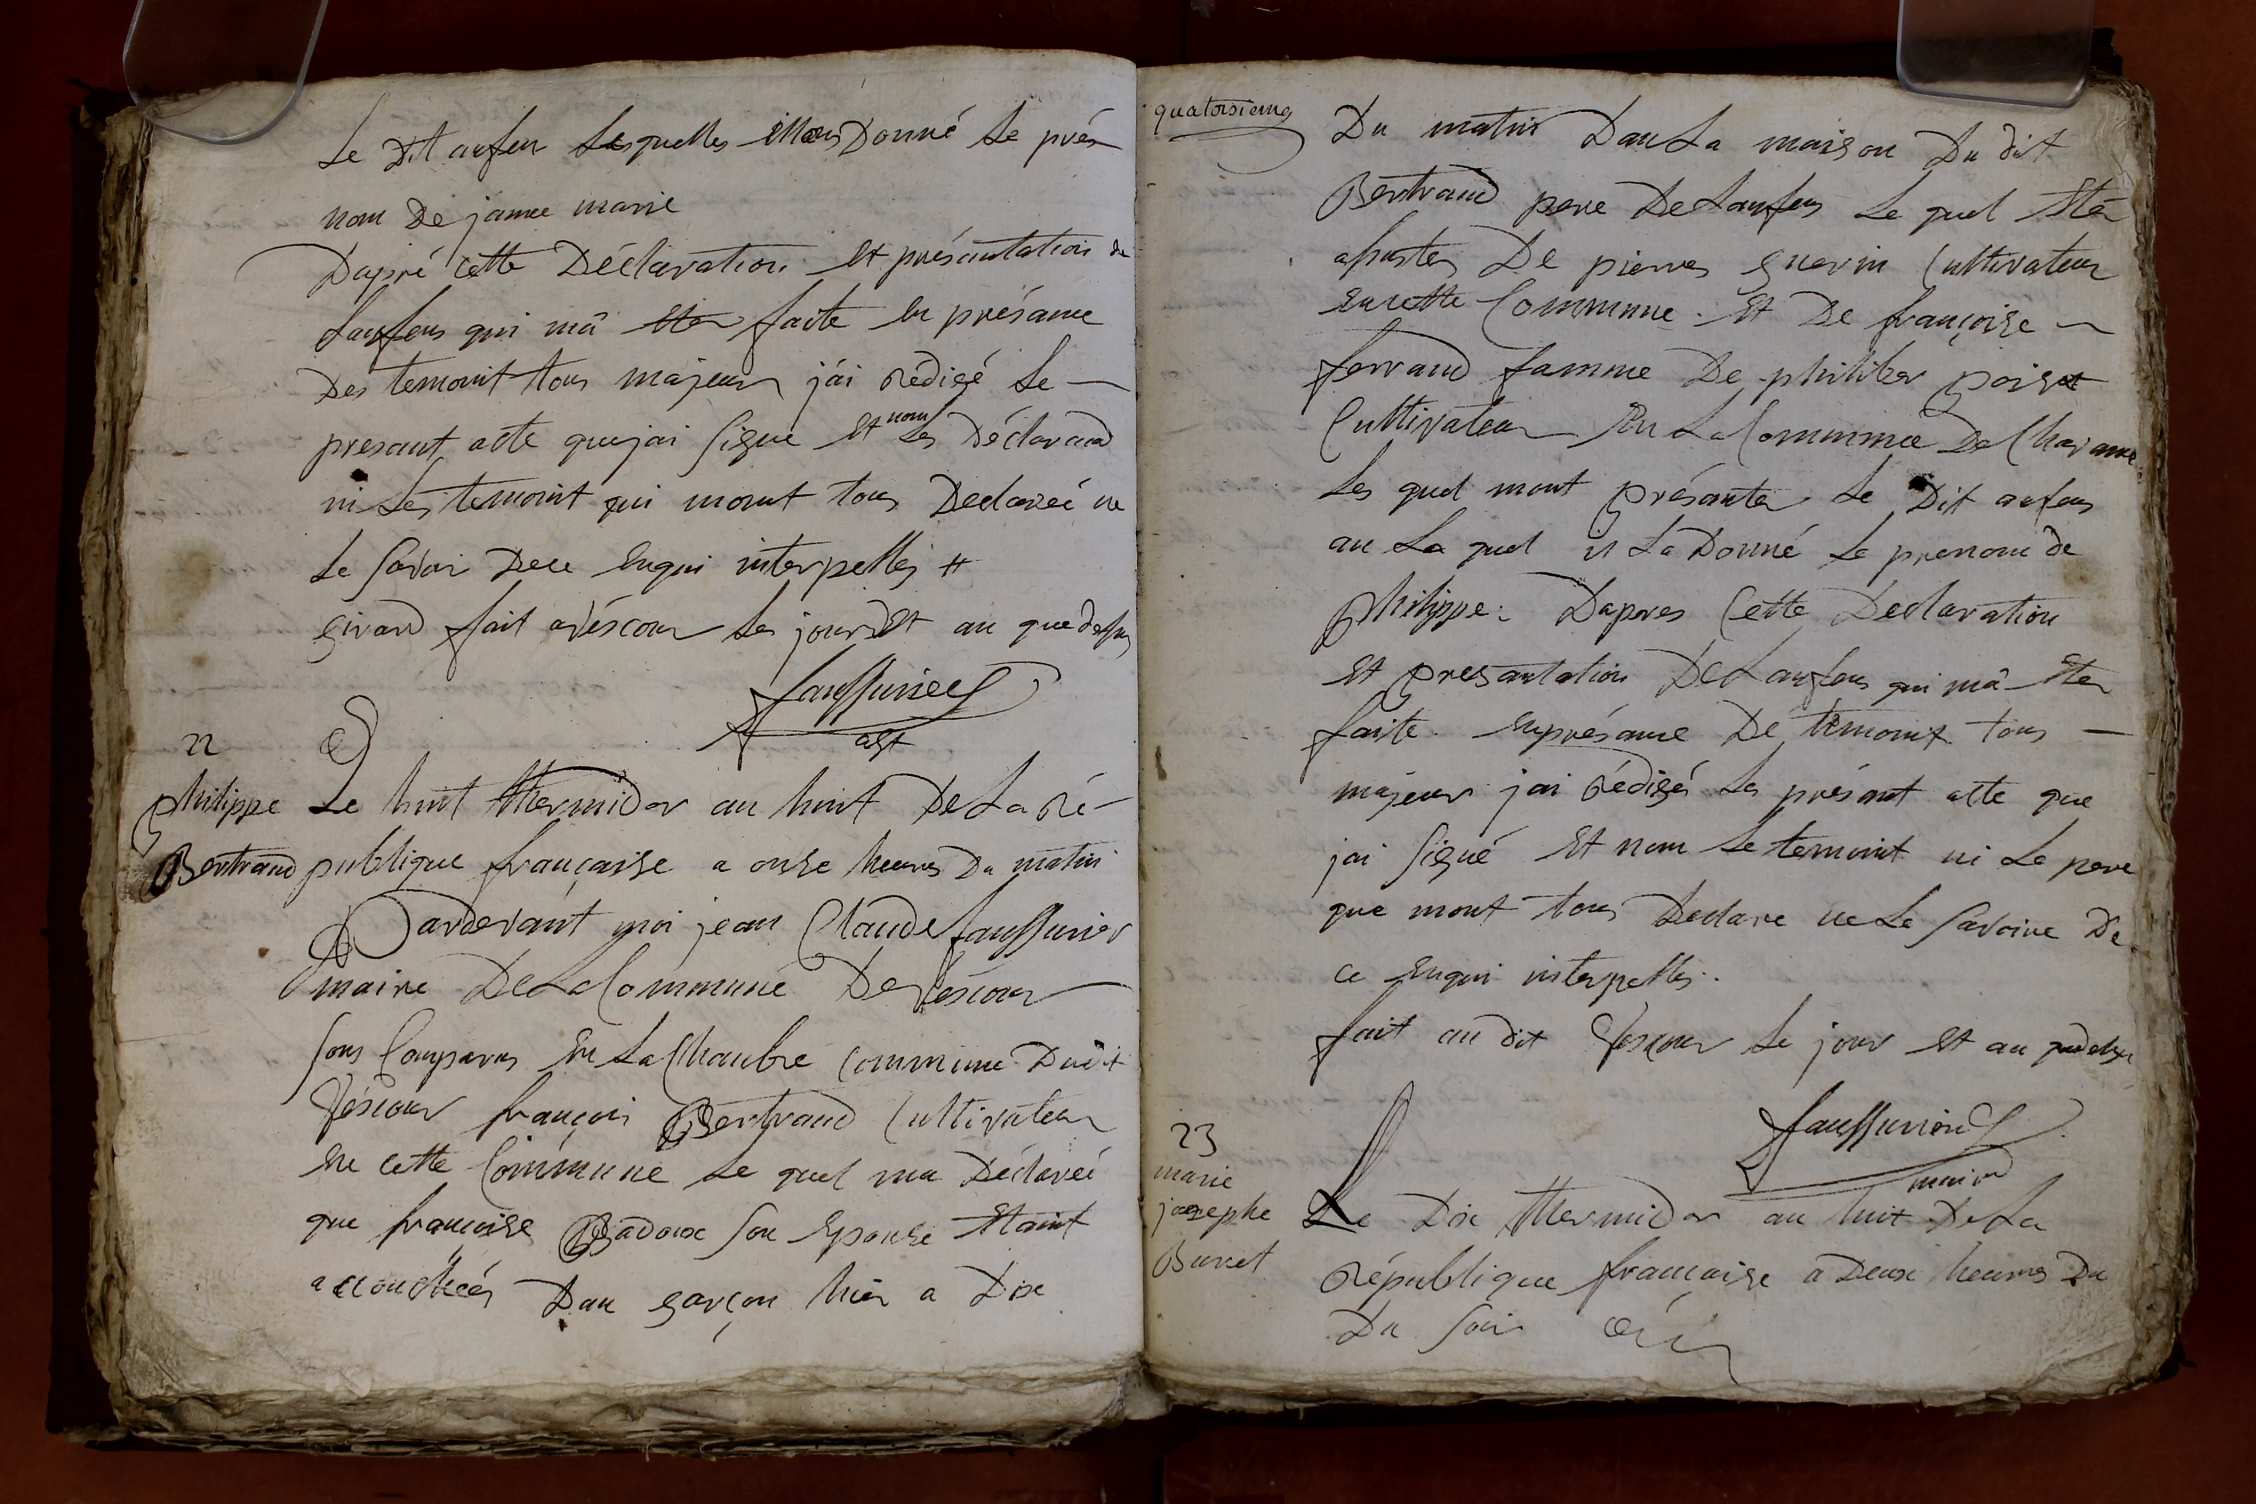 Le Dit anfen Lesquelles illons Donné Le pré-
nom De janne marie
Dapré cette Déclaration et présantation de
Lanfens qui mâ eter faite en présance
Des temoint tous majeur j'ai rédigé Le
presant acte que jai signe et nom Les Déclarand
ni Les temoint qui mont tous Declareé ne
Le savoir Dece enqui interpellés
girard fait a véscour Les jour et an que dessus
faussurier
agt
22
Philippe
Bertrand
Le huit thermidor an huit De La ré-
publique française a onse heures Du matin
Pardevant moi jean Claude faussurier
maire De La Commune De Véscour
sons Comparus en La Chanbre Commune Dudit
Véscour françois Bertrand Cultivateur
en cette Commune Le quel ma Déclareé
que françoise Badoux son epouse etaint
accouchées Dun garçon hier a Dix
quatorsieme
Du matin Dan La maison Du dit
Bertrand pere De Lanfens Le quel eter
asister De pierres guerin Cultivateur
en cette Commune et De françoise
ferrand famme De philiber poiset
Cultivateur en La Commune De Charanne
Les quel mont présanter Le Dit anfens
au La quel il La Donné Le prenom de
Philippe. Dapres Cette Declaration
et presantation De Lanfens qui mâ eter
faite enprésance De temoint tous
majeur jai rédigés Les présant acte que
jai signé et nom Le temoint ni Le pere
que mont tous Declare ne Le savoire De
ce enqui interpellés
fait au dit Véscour Le jour et an quedesu
faussurier
maire
23
marie
josephe
Buret
Le Dix thermidor an huit De La
République française a Deux heures Du
Du soir